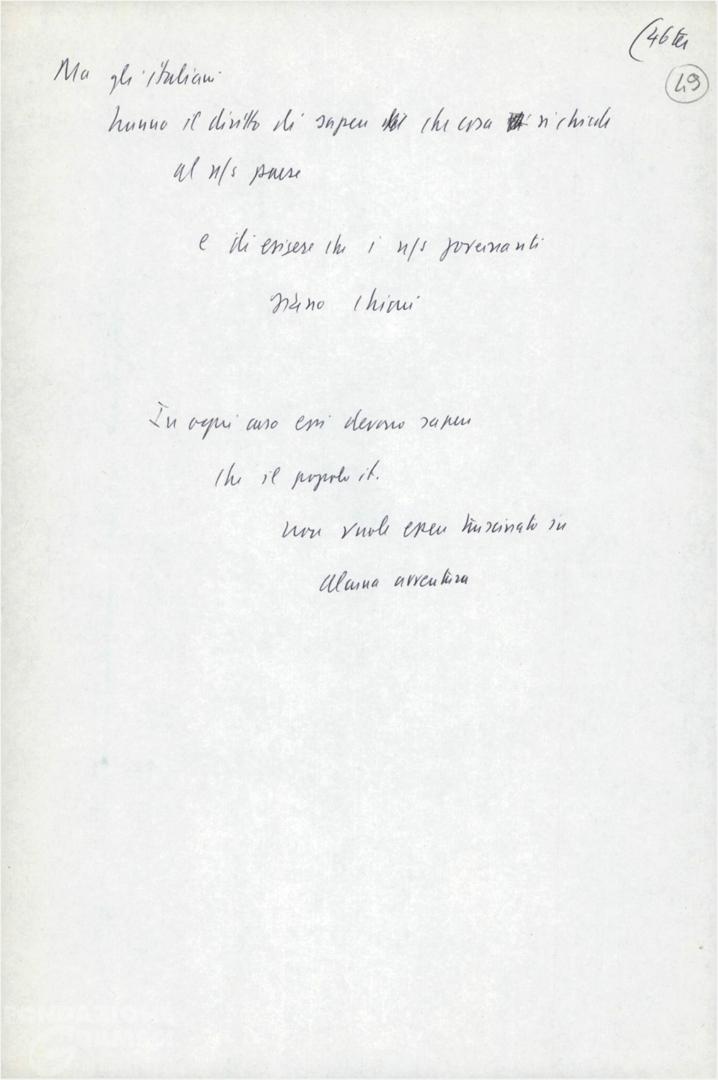 (46 ter
49
Ma gli italiani
hanno il diritto di sapere che cosa si chiede
al n/s paese
e di esigere che i n/s governanti
siano chiari
In ogni caso essi devono sapere
che il popolo it.
non vuole essere trascinato in
alcuna avventura